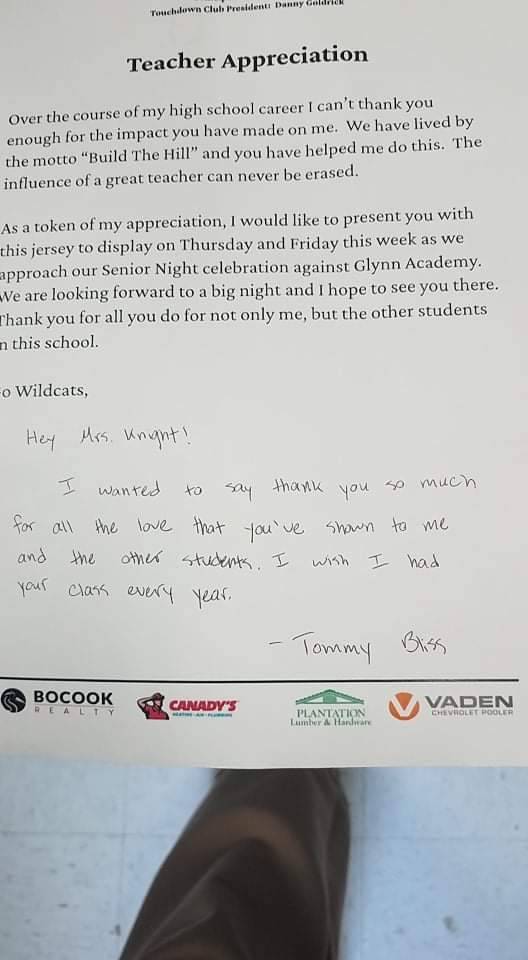 Touchdown Club President: Danny Goldrick
Teacher Appreciation
Over the course of my high school career I can't thank you
enough for the impact you have made on me. We have lived by
the motto "Build The Hill" and you have helped me do this. The
influence of a great teacher can never be erased.
As a token of my appreciation, I would like to present you with
this jersey to display on Thursday and Friday this week as we
approach our Senior Night celebration against Glynn Academy.
We are looking forward to a big night and I hope to see you there.
Thank you for all you do for not only me, but the other students
n this school.
o Wildcats,
Hey Mrs. Knight!
I wanted to say thank you so much
for all the love that you've shown to me
and the other students. I wish I had
your class every year.
- Tommy Bliss
BOCOOK
REALTY
CANADY'S
HEATING · AIR · PLUMBING
PLANTATION
Lumber & Hardware
VADEN
CHEVROLET POOLER